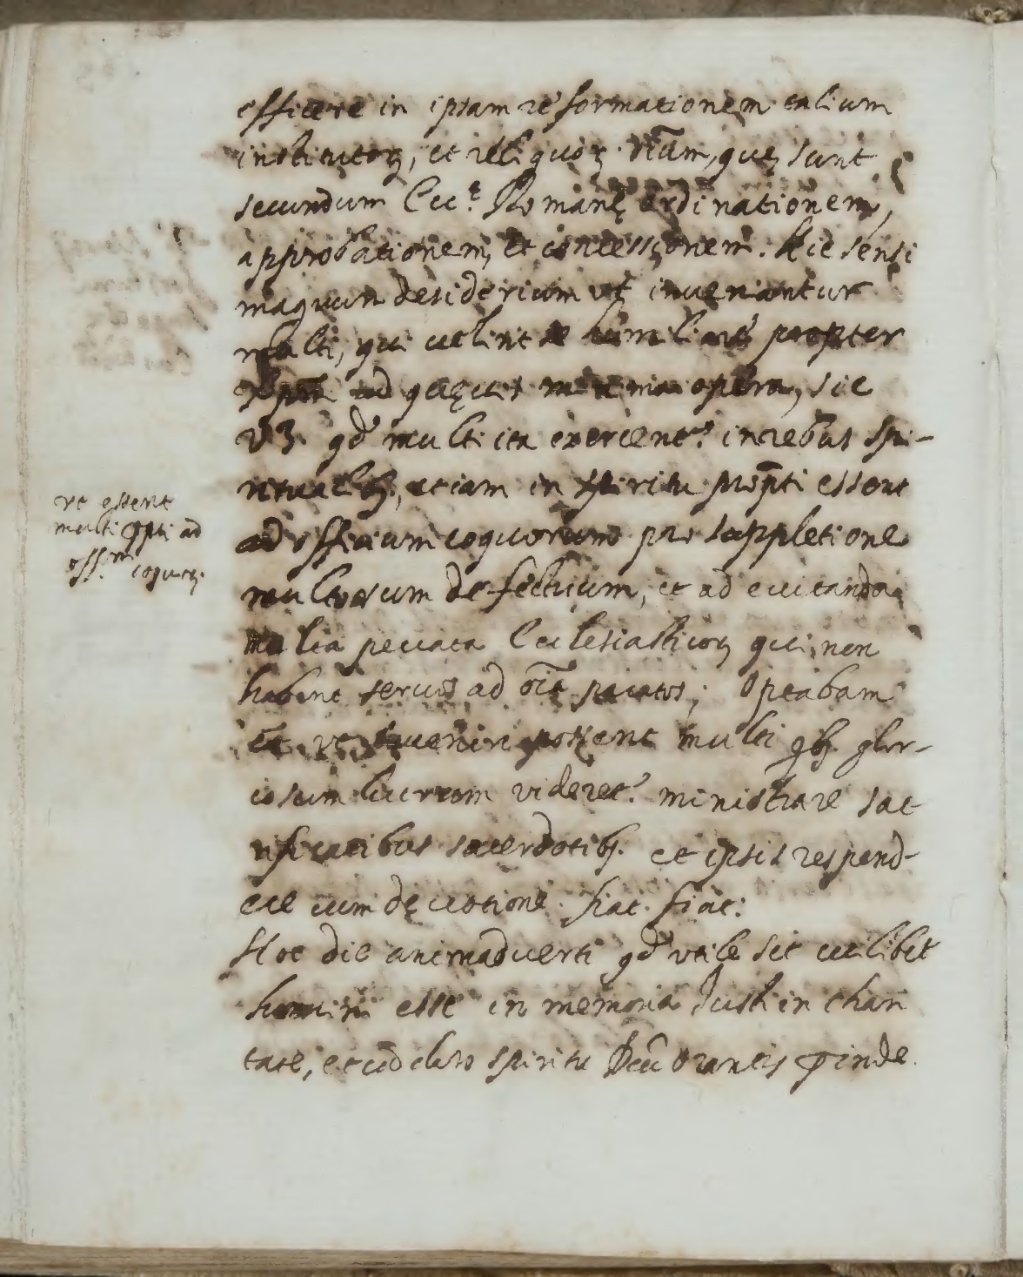 efficere in ipsam reformationem talium
institutoꝝ, et reliquoꝝ. Nam, quę sunt
secundum Ecc.ę Romanę ordinationem,
approbationem, et concessionem. Hic sensi
magnum desiderium ut inuenirentur
multi, qui uelint se humiliare propter
ad quęuis opera, sic
qd̃ multi ita exercent.r in rebus spi-
ritualib3, etiam in spiritu prompti essent
ad officium coquorum pro suppletione
multorum defectuum, et ad euitanda
multa peccata Ecclesiasticoꝝ qui non
habent seruos ad oĩa paratos; Optabam
et ut inueniri possent multi qb3. glor-
iosum lucrum videret.r ministrare sac
rificantibus sacerdotib3. et ipsis respond-
ere cum deuotione. fiat. fiat:
Hoc die animaduerti qd̃ utile sit cuilibet
homini esse in memoria Justi in chari
tate, et eodem spiritu Deũ orantis ꝓinde.
ut essent
multi apti ad
off.m coquoꝝ.